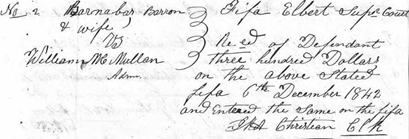 No 2 Barnabas Barron
& wife
vs
William McMullan
Admr.
Fifa Elbert Supr Court
Recd of Defendant
three hundred Dollars
on the above Stated
fifa 6th December 1842
and Entered the Same on the fifa
Christian Clk